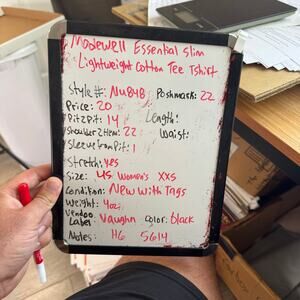 Madewell Essential Slim
Lightweight Cotton Tee Tshirt
Style #: NU848 Poshmark: 22
Price: 20
Pit2pit: 14 Length:
Shoulder2Hem: 22 Waist:
Sleeve from Pit: 1
Stretch: yes
Size: US Women's XXS
Condition: New With Tags
Weight: 4oz
Vendoo
Label: Vaughn Color: Black
Notes: H6 5614